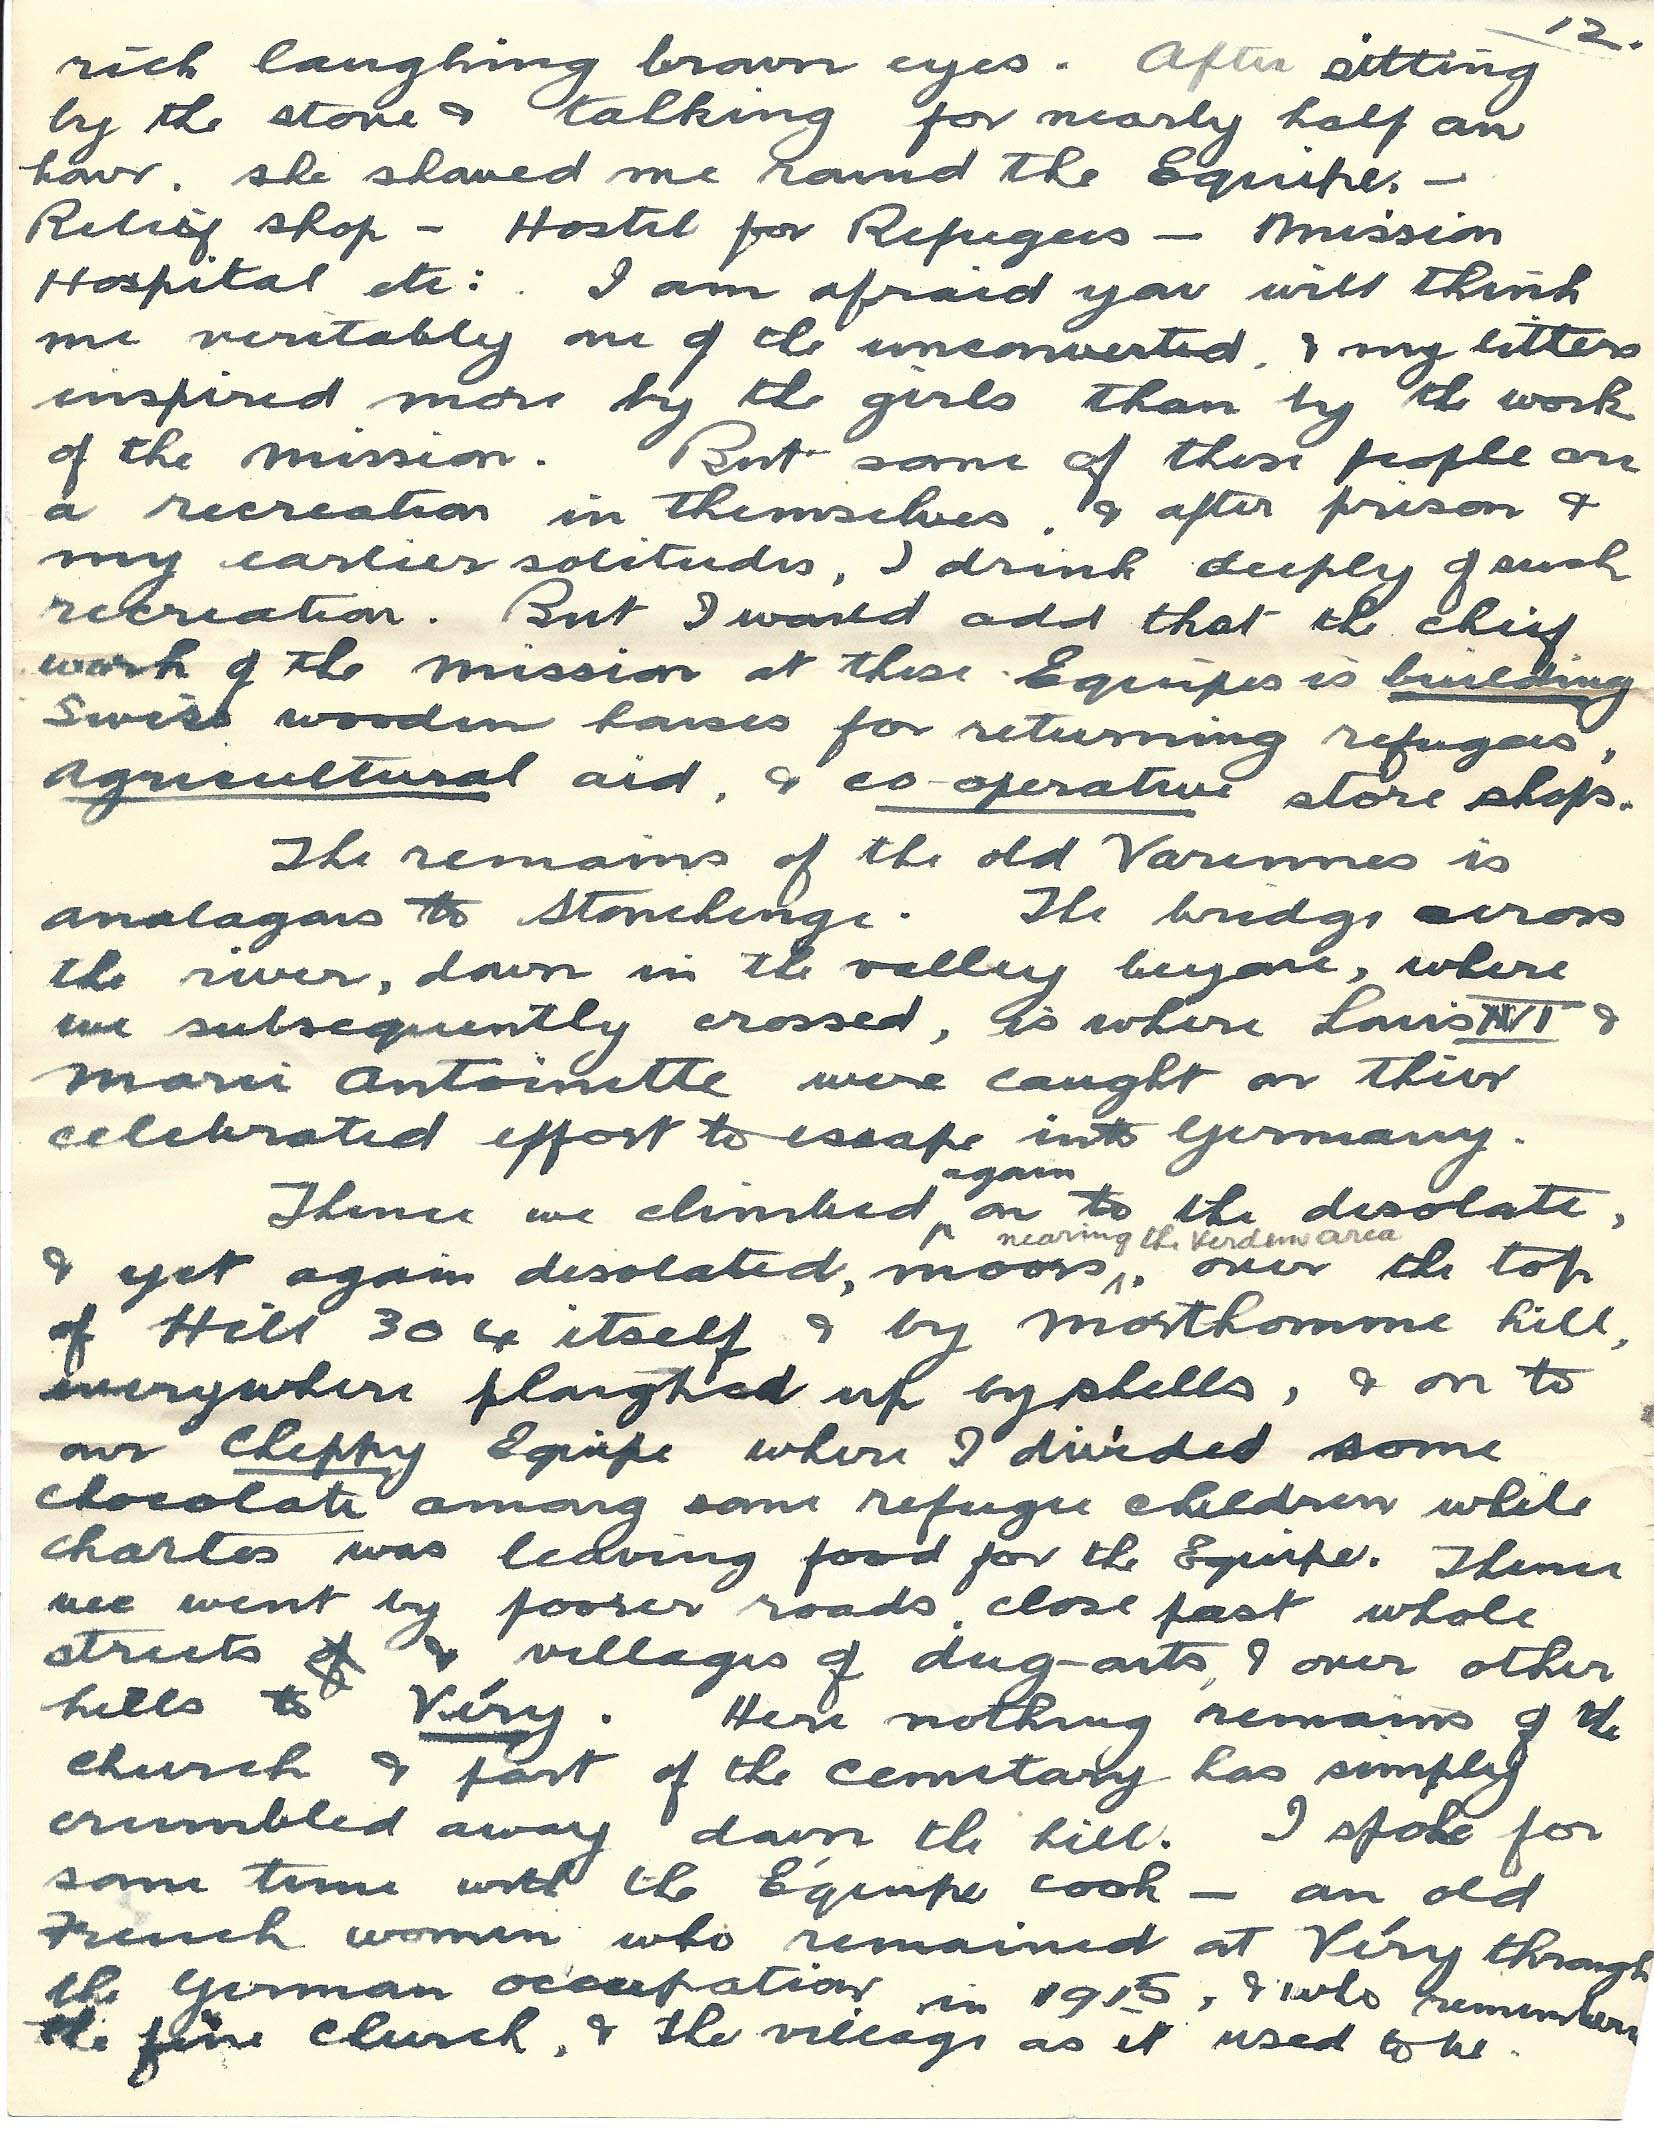 12.
rich laughing brown eyes. After sitting
by the stove & talking for nearly half an
hour, she showed me round the Equipe. –
Relief shop – Hostel for Refugees – Mission
Hospital etc: . I am afraid you will think
me veritably one of the unconverted, & my letters
inspired more by the girls than by the work
of the mission. But some of these people are
a recreation in themselves, & after prison &
my earlier solitudes, I drink deeply of such
recreation. But I would add that the chief
work of the mission at these Equipes is building
Swiss wooden houses for returning refugees,
agricultural aid, & co-operative store shops.
The remains of the old Varennes is
analagous to Stonehenge. The bridge across
the river, down in the valley beyond, where
we subsequently crossed, is where Louis XVI &
Marie Antoinette were caught on their
celebrated effort to escape into Germany.
again
Thence we climbed, on to the desolate,
nearing the Verdun area
& yet again desolated, moors, over the top
of Hill 304 itself & by Morthomme hill,
everywhere ploughed up by shells, & on to
our Cheppy Equipe where I divided some
chocolate among some refugee children while
Charles was leaving food for the Equipe. Thence
we went by poorer roads, close past whole
streets of & villages of dug-outs, & over other
hills to Véry. Here nothing remains of the
church & part of the cemetary has simply
crumbled away down the hill. I spoke for
some time with the Equipe cook – an old
French women who remained at Véry through
the German occupation in 1915, & who remembers
the fine church, & the village as it used to be.